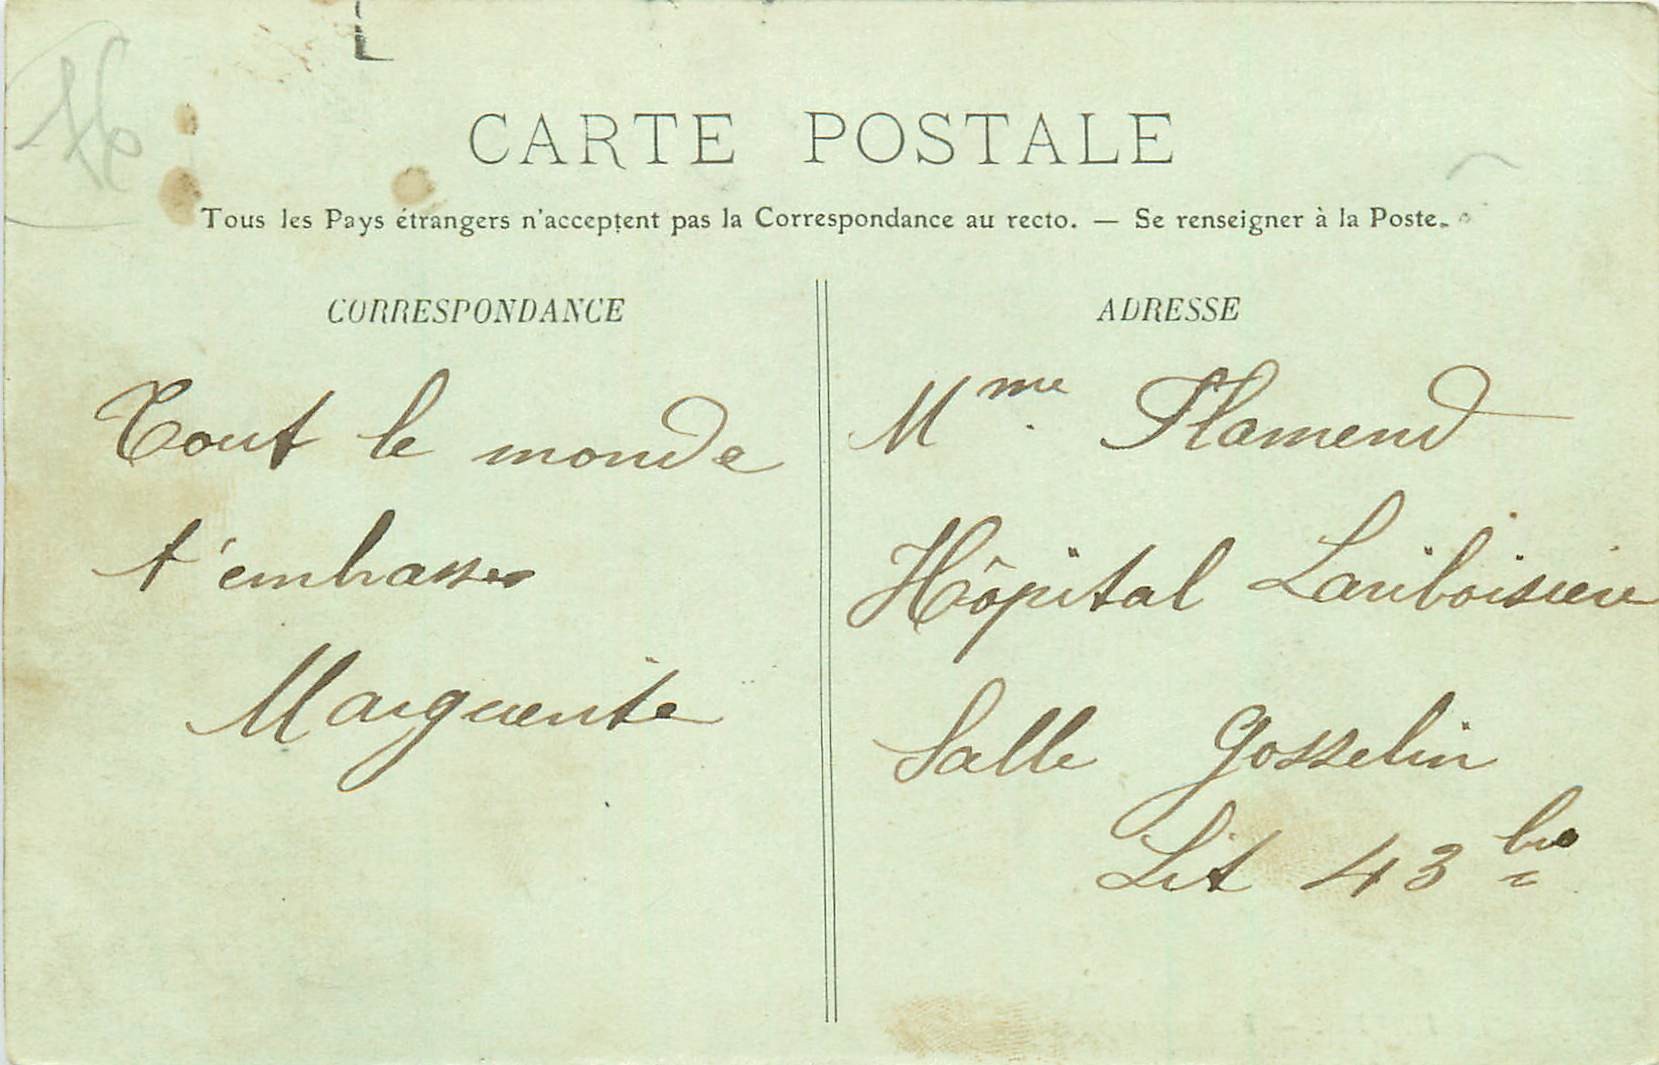 16
CARTE POSTALE
Tous les Pays étrangers n'acceptent pas la Correspondance au recto. — Se renseigner à la Poste.
CORRESPONDANCE
Tout le monde
t'embrasse
Marguerite
ADRESSE
Mme. Flamend
Hôpital Lariboisiere
Salle Gosselin
Lit 43 bis